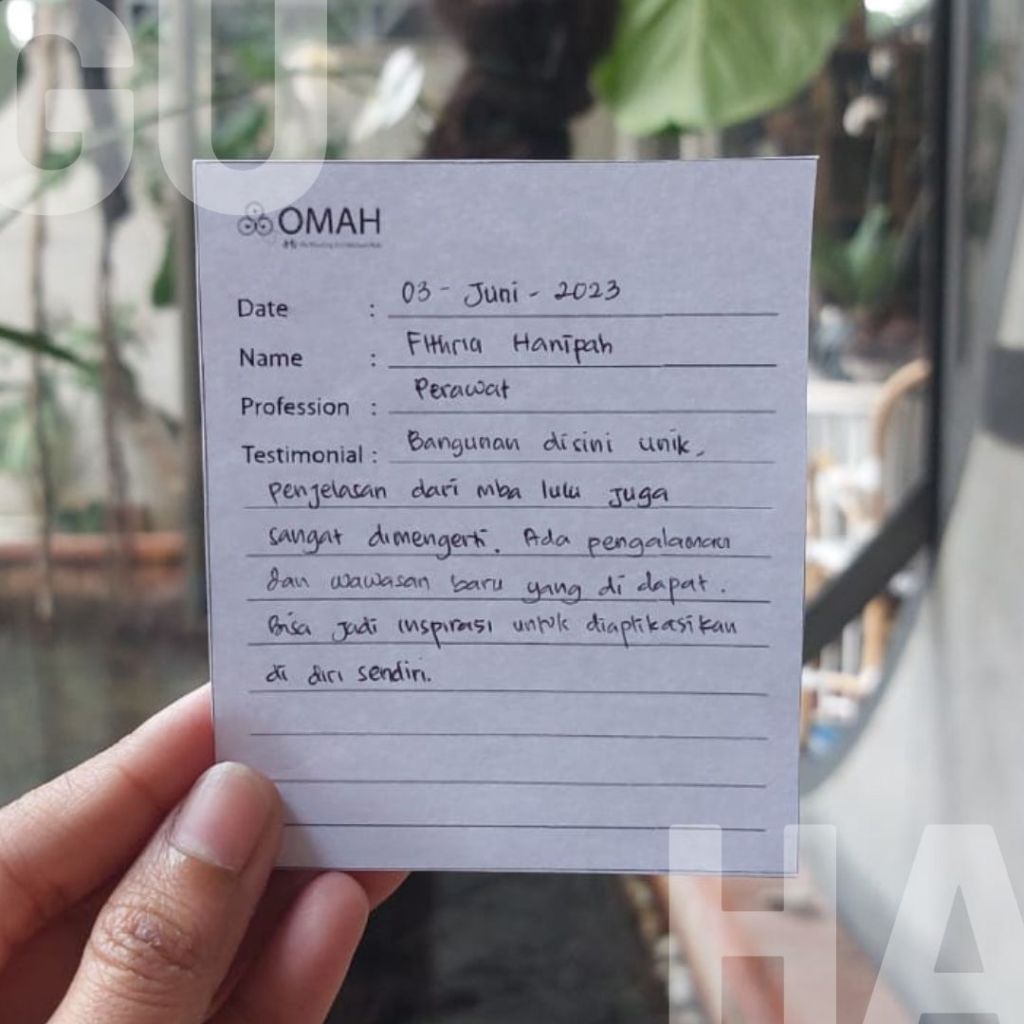 GU
OMAH
Date : 03 - Juni - 2023
Name : Fithria Hanipah
Profession : Perawat
Testimonial : Bangunan disini unik,
penjelasan dari mba lulu juga
sangat dimengerti. Ada pengalaman
dan wawasan baru yang di dapat.
Bisa jadi inspirasi untuk diaplikasikan
di diri sendiri.
HA